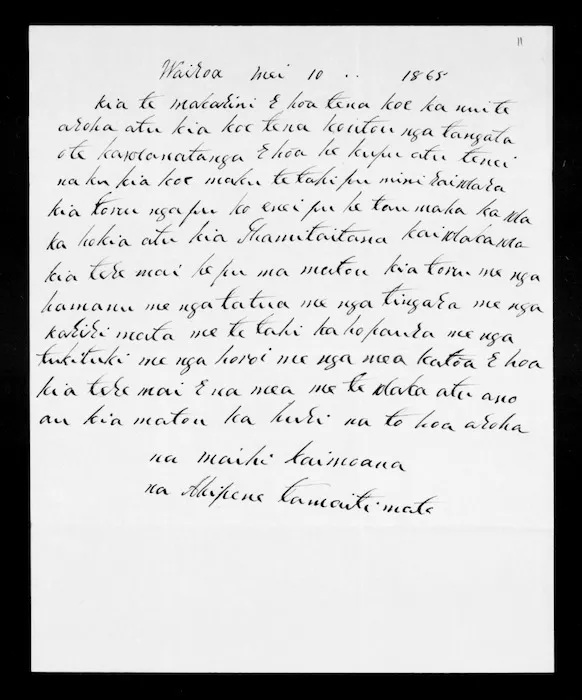 11
Wairoa mei 10 .. 1865
kia te makarini E hoa tena koe ka nui te
aroha atu kia koe tena koutou nga tangata
ote kawanatanga E hoa he kupu atu tenei
naku kia koe maku tetahi pu mini raiwhara
kia toru nga pu ko enei pu he tau maha ka wha
ka hokia atu kia Ihamutaitana kaiwhakawa
kia tere mai he pu ma matou kia toru me nga
hamanu me nga tatua me nga tingara me nga
kariri mata me te tahi kaho paura me nga
tukituki me nga horoi me nga mea katoa E hoa
kia tere mai E na mea me te whaka atu ano
au kia matou ka huri na to hoa aroha
na maihi kaimoana
na Ahipene tamaitimate